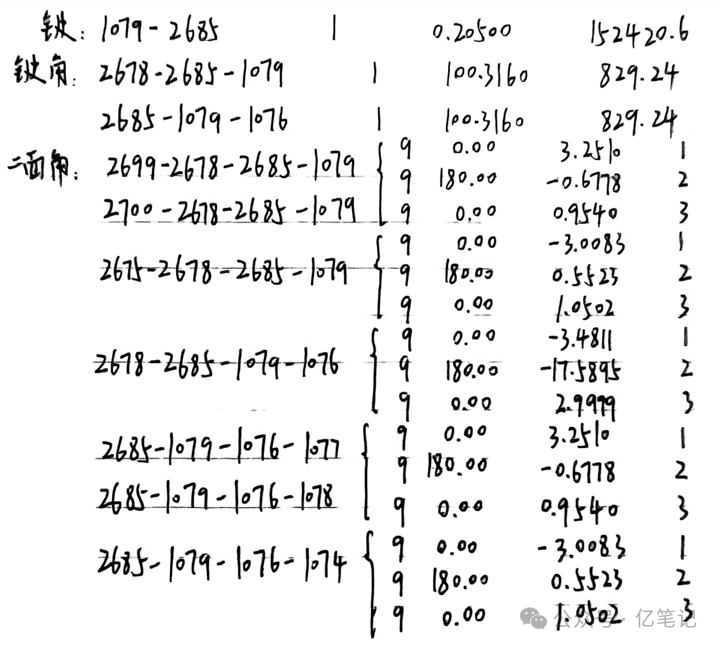 键: 1079-2685 1 0.20500 152420.6
键角: 2678-2685-1079 1 100.3160 829.24
2685-1079-1076 1 100.3160 829.24
二面角: 2699-2678-2685-1079 9 0.00 3.2510 1
9 180.00 -0.6778 2
2700-2678-2685-1079 9 0.00 0.9540 3
9 0.00 -3.0083 1
2675-2678-2685-1079 9 180.00 0.5523 2
9 0.00 1.0502 3
9 0.00 -3.4811 1
2678-2685-1079-1076 9 180.00 -17.5895 2
9 0.00 2.9999 3
2685-1079-1076-1077 9 0.00 3.2510 1
9 180.00 -0.6778 2
2685-1079-1076-1078 9 0.00 0.9540 3
2685-1079-1076-1074 9 0.00 -3.0083 1
9 180.00 0.5523 2
9 0.00 1.0502 3
公众号·亿笔记